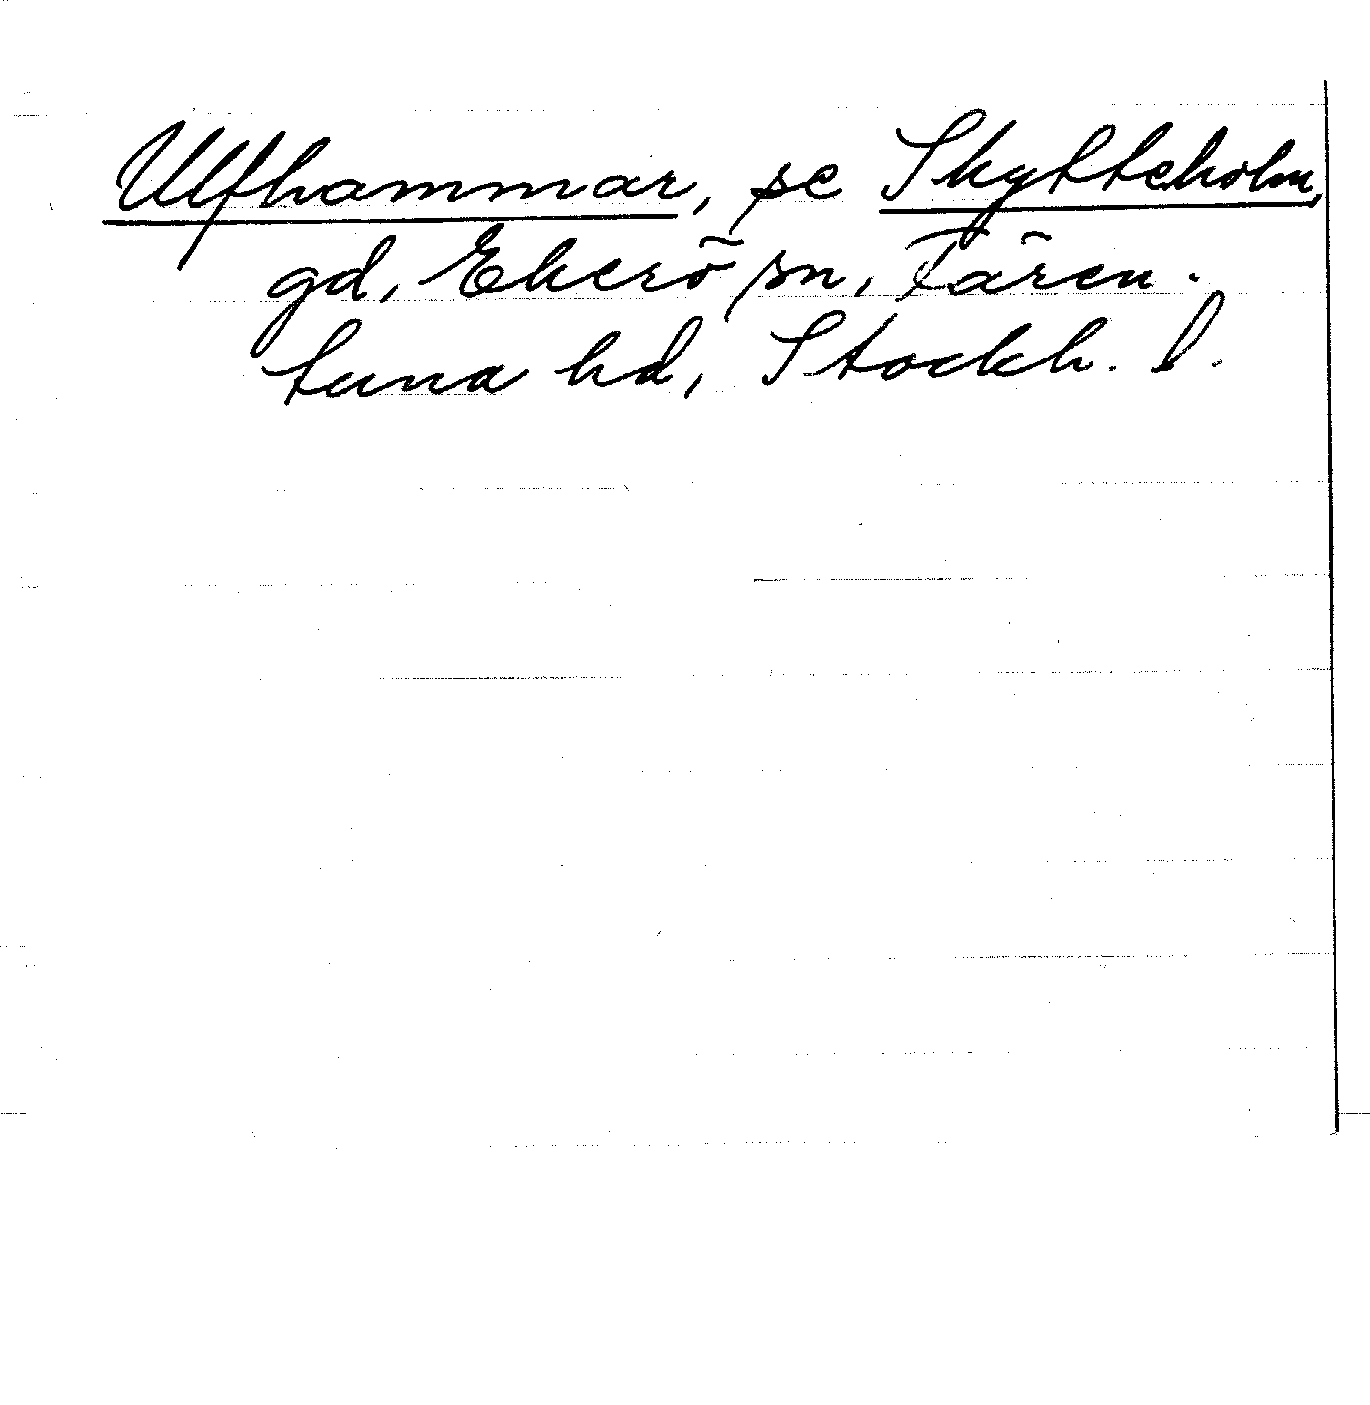 Ulfhammar, se Skytteholm,
gd, Ekerö sn, Fären-
tuna hd, Stockh. l.